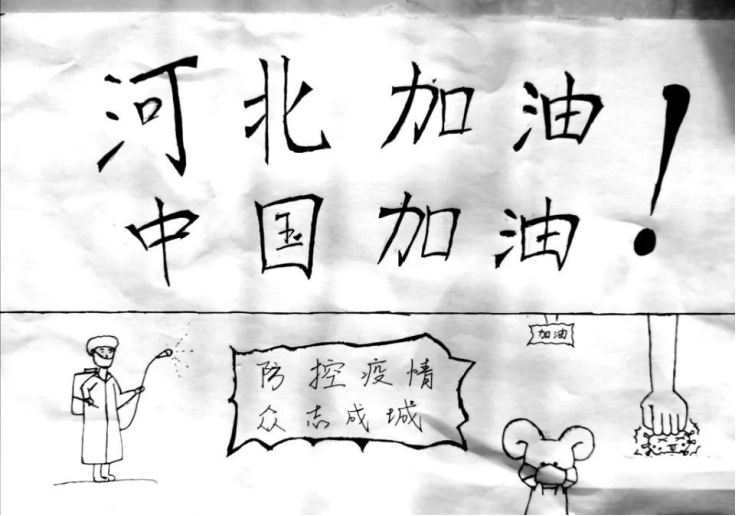 河北加油!
中国加油
加油
防控疫情
众志成城